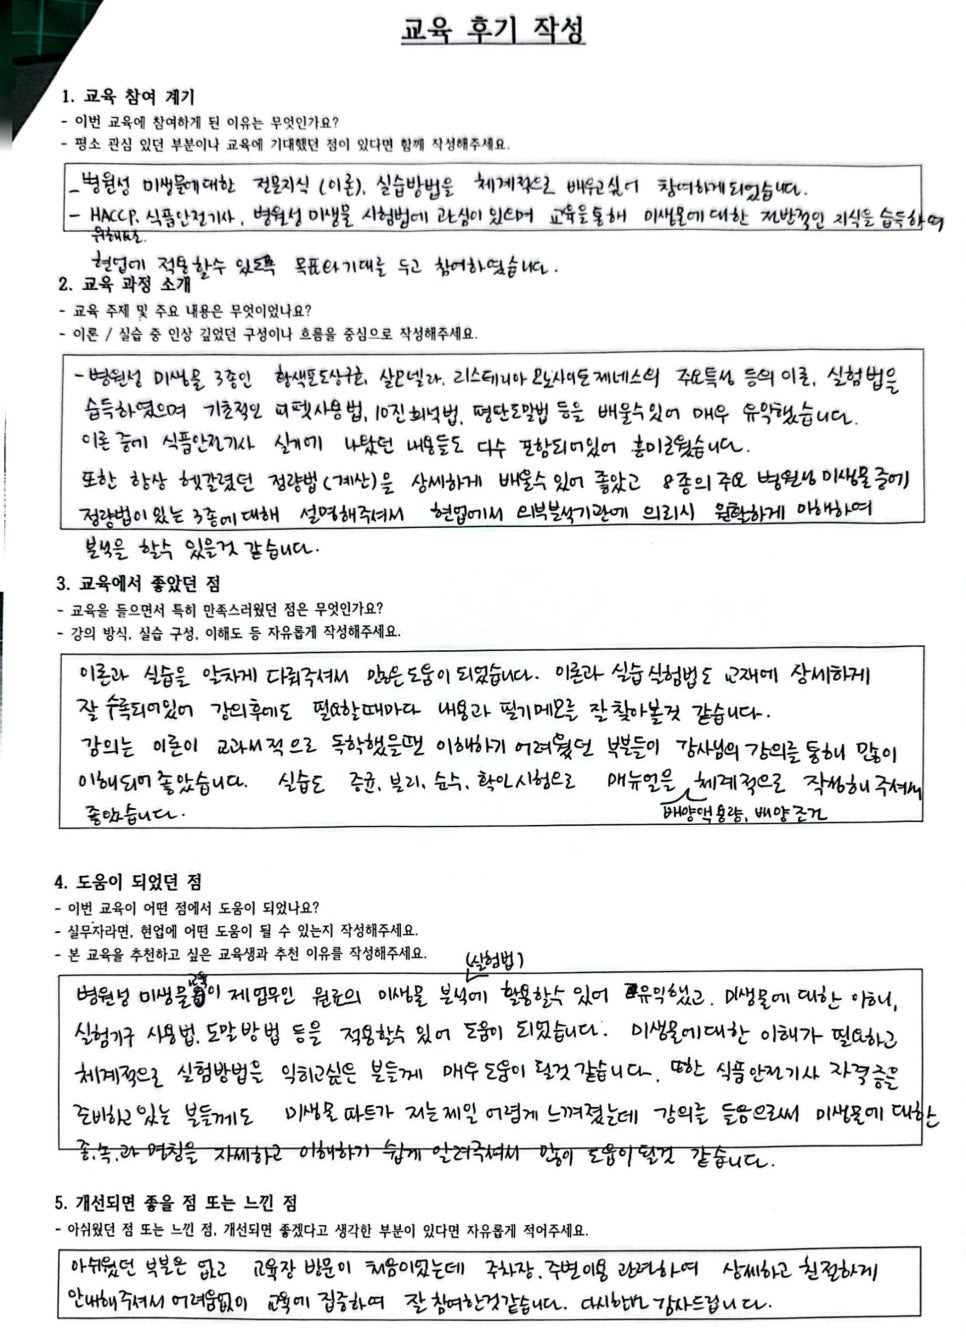 교육 후기 작성
1. 교육 참여 계기
- 이번 교육에 참여하게 된 이유는 무엇인가요?
- 평소 관심 있던 부분이나 교육에 기대했던 점이 있다면 함께 작성해주세요.
- 병원성 미생물에 대한 전문지식(이론), 실습방법을 체계적으로 배우고 싶어 참여하게 되었습니다.
- HACCP, 식품안전기사, 병원성 미생물 시험법에 관심이 있으며 교육을 통해 미생물에 대한 전반적인 지식을 습득하여
위해요소.
현업에 적용할수 있도록 목표와 기대를 두고 참여하였습니다.
2. 교육 과정 소개
- 교육 주제 및 주요 내용은 무엇이었나요?
- 이론 / 실습 중 인상 깊었던 구성이나 흐름을 중심으로 작성해주세요.
- 병원성 미생물 3종인 황색포도상구균, 살모넬라, 리스테리아 모노사이토제네스의 주요특성 등의 이론, 실험법을
습득하였으며 기초적인 피펫사용법, 10진 희석법, 평판도말법 등을 배울수있어 매우 유익했습니다.
이론 중에 식품안전기사 실기에 나왔던 내용들도 다수 포함되어있어 흥미로웠습니다.
또한 항상 헷갈렸던 정량법(계산)을 상세하게 배울수 있어 좋았고 8종의 주요 병원성 미생물 중에
정량법이 있는 3종에 대해 설명해주셔서 현업에서 외부분석기관에 의뢰시 원활하게 이해하여
분석을 할수 있을것 같습니다.
3. 교육에서 좋았던 점
- 교육을 들으면서 특히 만족스러웠던 점은 무엇인가요?
- 강의 방식, 실습 구성, 이해도 등 자유롭게 작성해주세요.
이론과 실습을 알차게 다뤄주셔서 많은 도움이 되었습니다. 이론과 실습 실험법도 교재에 상세하게
잘 수록되어있어 강의후에도 필요할때마다 내용과 필기메모를 잘 찾아볼것 같습니다.
강의는 이론이 교과서적으로 독학했을땐 이해하기 어려웠던 부분들이 강사님의 강의를 통해 많이
이해되어 좋았습니다. 실습도 증균, 분리, 순수, 확인시험으로 매뉴얼을 체계적으로 작성해 주셔서
좋았습니다. 배양액 용량, 배양조건
4. 도움이 되었던 점
- 이번 교육이 어떤 점에서 도움이 되었나요?
- 실무자라면, 현업에 어떤 도움이 될 수 있는지 작성해주세요.
- 본 교육을 추천하고 싶은 교육생과 추천 이유를 작성해주세요.
(실험법)
병원성 미생물 교육이 제 업무인 원료의 미생물 분석에 활용할수 있어 유익했고, 미생물에 대한 이해,
실험기구 사용법, 도말방법 등을 적용할수 있어 도움이 되었습니다. 미생물에 대한 이해가 필요하고
체계적으로 실험방법을 익히고싶은 분들께 매우 도움이 될것 같습니다. 또한 식품안전기사 자격증을
준비하고 있는 분들께도 미생물 파트가 저는 제일 어렵게 느껴졌는데 강의를 들음으로써 미생물에 대한
종, 속, 과 명칭을 자세하고 이해하기 쉽게 알려주셔서 많이 도움이 될것 같습니다.
5. 개선되면 좋을 점 또는 느낀 점
- 아쉬웠던 점 또는 느낀 점, 개선되면 좋겠다고 생각한 부분이 있다면 자유롭게 적어주세요.
아쉬웠던 부분은 없고 교육장 방문이 처음이었는데 주차장, 주변이용 관련하여 상세하고 친절하게
안내해주셔서 어려움없이 교육에 집중하여 잘 참여한것같습니다. 다시한번 감사드립니다.